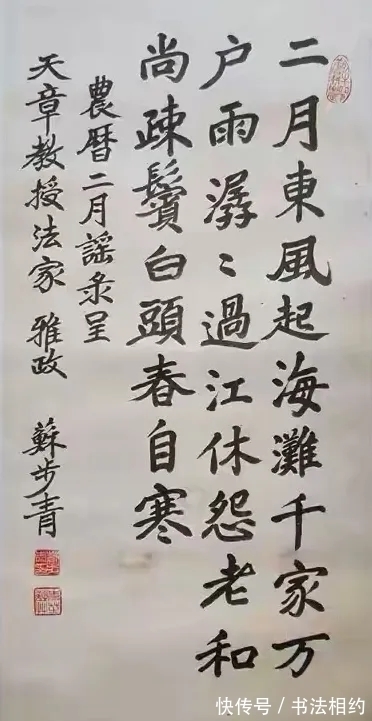 二月東風起海灘千家万
户雨潺〻過江休怨老和
尚疎鬢白頭春自寒
農曆二月謡录呈
天章教授法家雅政
蘇步青
快传号/书法相约